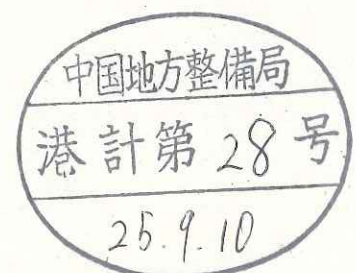 中国地方整備局
港計第28号
25.9.10